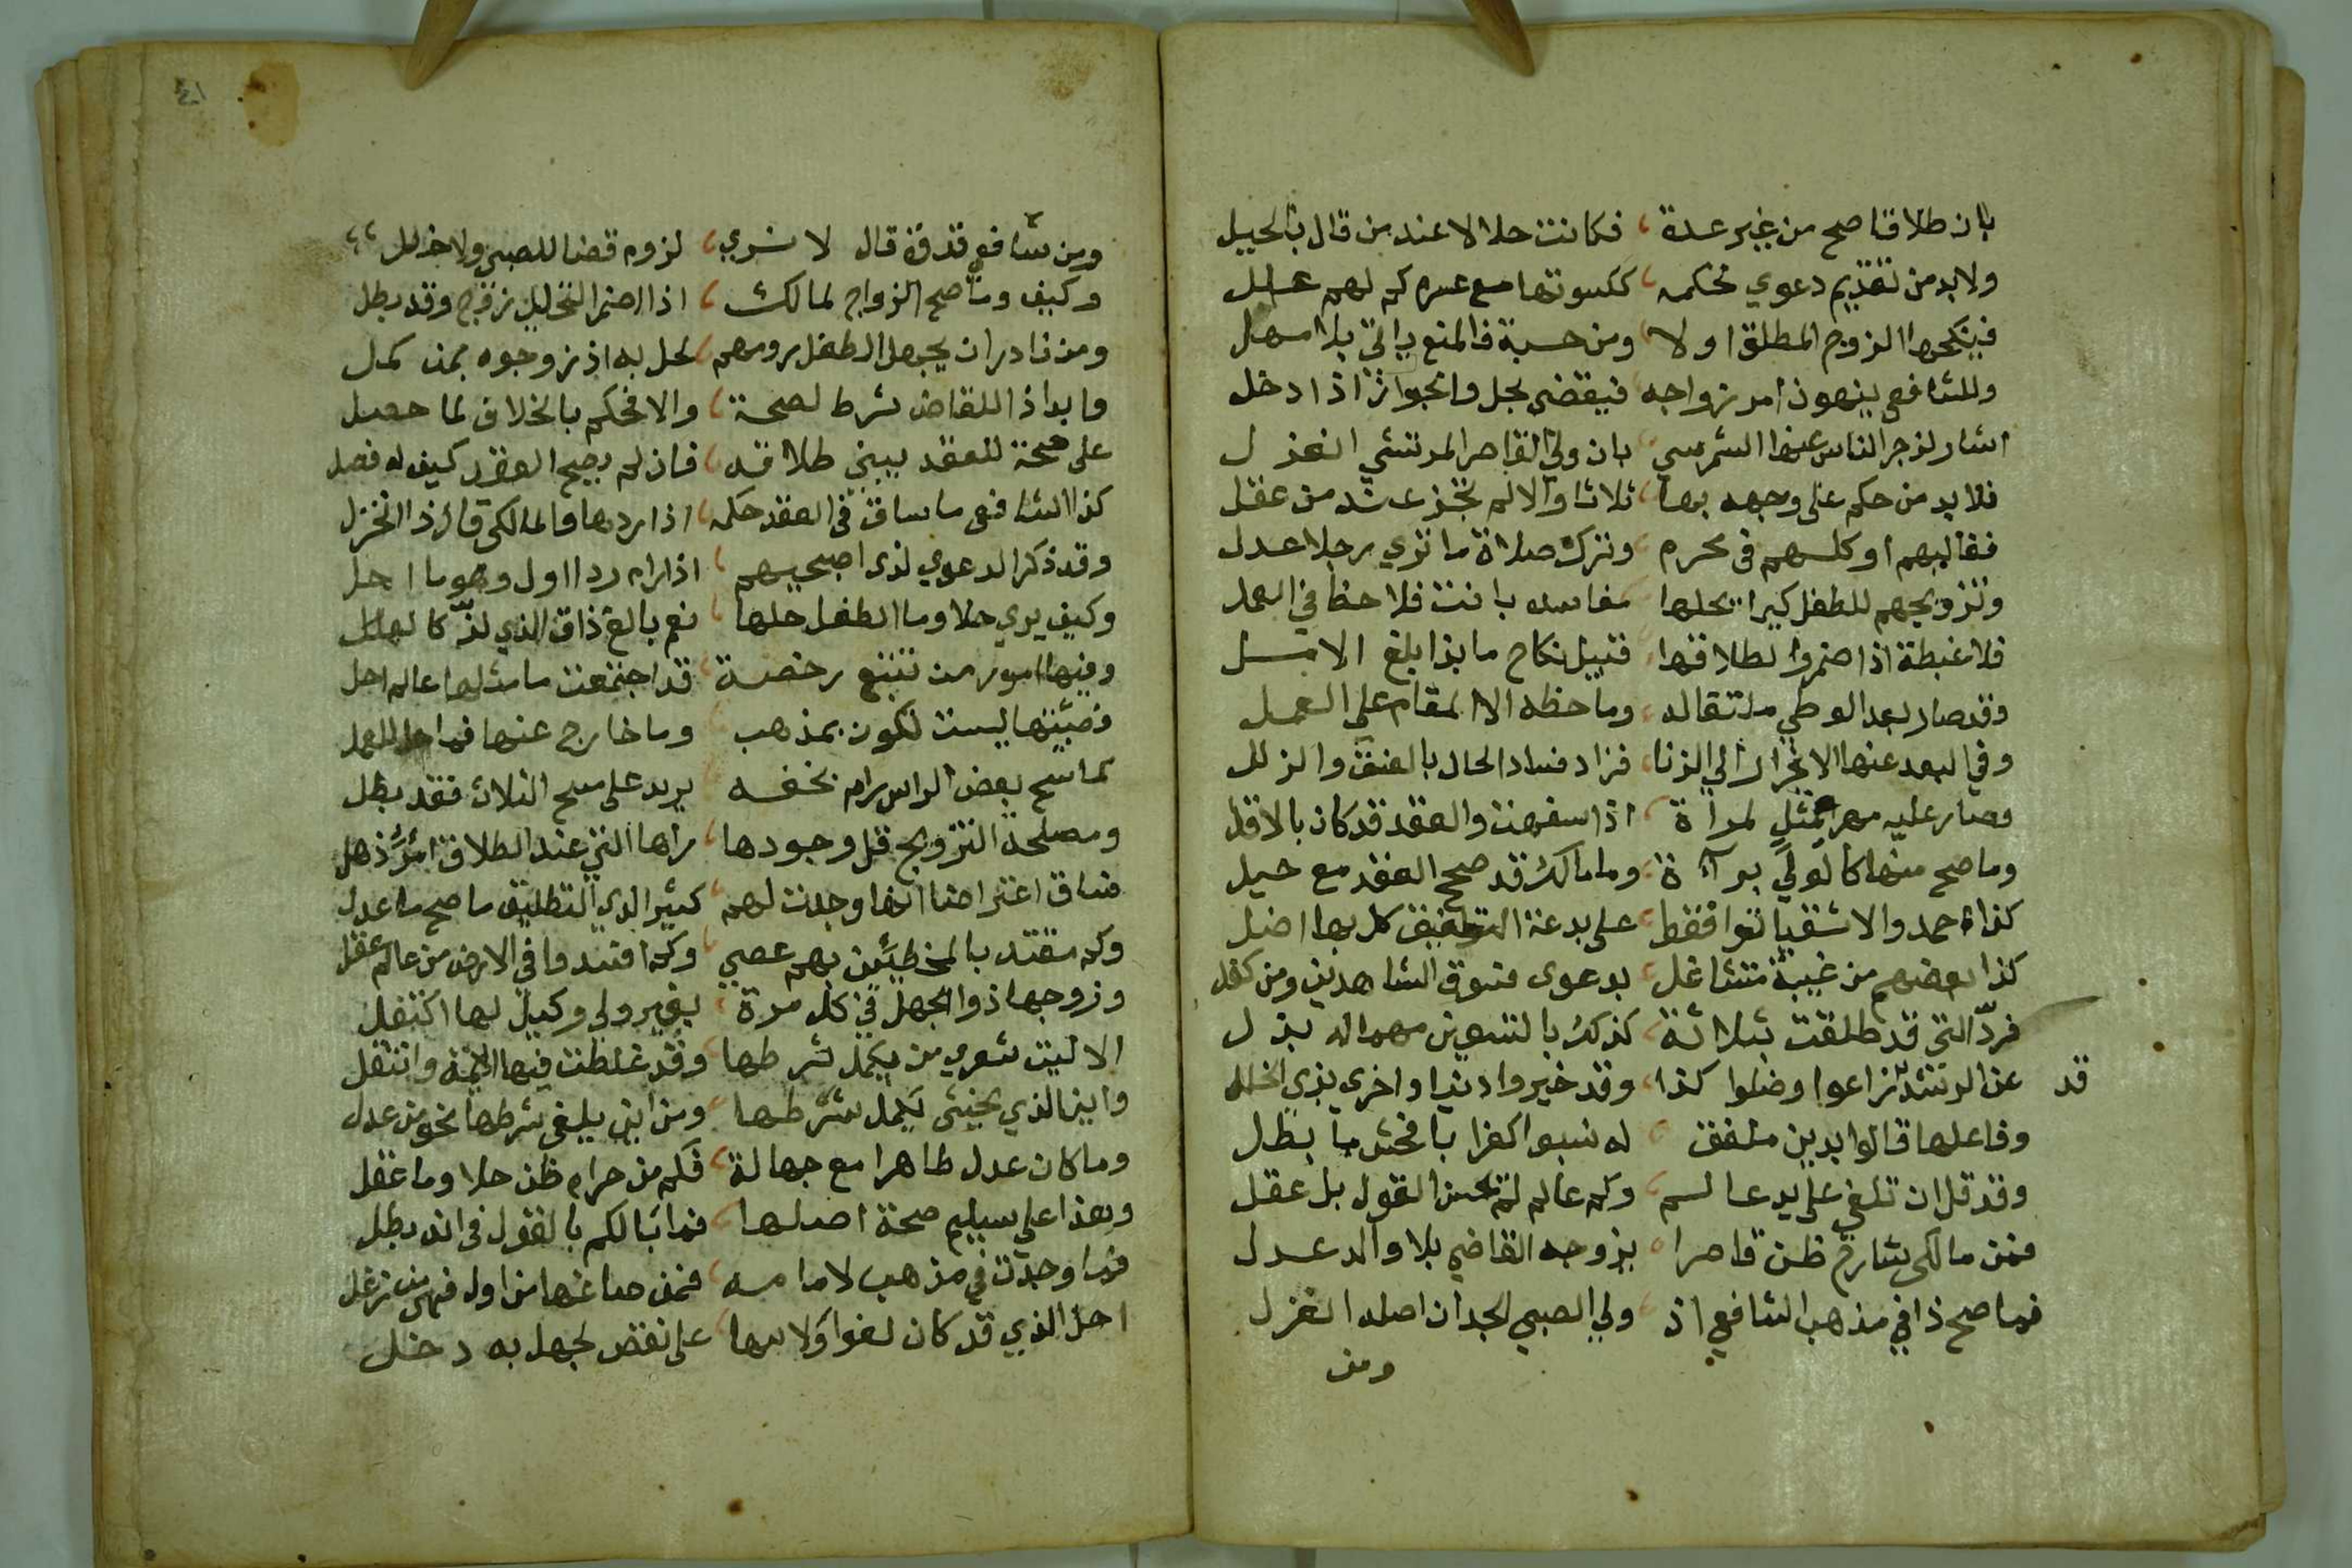 بان طلاقا صح من غير عدة ، فكانت حلالا عند من قال بالحيل
ولا بد من تقديم دعوي تحكمه ، ككسوتها مع عسره كم لهم علل
فينكحها الزوج المطلق اولا ومن حسبة فالمنع ياتي بلا مهل
وللشافعي ينهون امر زواجه فيقضي بحل والجواز اذا دخل
اشار لزجر الناس عنها الشمرسي بان ولي القاصر المرتشي انعزل
فلا بد من حكم علي وجهه بها ثلاثا والا لم تجز عند من عقل
فغالبهم اوكلهم في محرم وترك صلاة ما تري رجلا عدل
وتزويجهم للطفل كيرا يحلها مفاسده بانت فلا حظ في العمل
فلا غبطة اذا اضمروا لطلاقها قبيل نكاح ما بذا بلغ الامل
وقد صار بعد الوطي ما تقاله وما حظه الا المقام علي العمل
وفي البعد عنها الانجرار الي الزنا فزاد فساد الحال بالعنق والزلل
وصار عليه مهر مثل لمراة اذا سفهت والعقد قد كان بالاقل
وما صح منها كالولي براة وما مالك قد صحح العقد مع حيل
كذا احمد والاشقيا لغوا فقط علي بدعة التلفيق كل بها اضل
كذا بعضهم من غيبة متشاغل بدعوي فسوق الشاهدين ومن كفل
فردّ التي قد طلقت بثلاثة كذلك بالتسوين مهما له بذل
قد عن الرشد زاغوا وضلوا كذا وقد خيروا دنيا واخري بذي الخلل
وفاعلها قالوا بدين ملفق له نسبوا كفرا بافحش ما بطل
وقد قل ان تلغي علي يد عالم وكم عالم لم يحسن القول بل عقل
فمن مالكي شارح ظن قاصرا يزوجه القاضي بلا والد عدل
فما صح ذا في مذهب الشافعي اذ ولي الصبي الجد ان اصله انعزل
ومن
٤١
ومن شافعي قد قال لا نري ، لزوم قضا للصبي ولا خلل
وكيف وما صح الزواج لمالك ، اذا اضمر التحليل زوج وقد بطل
ومن نادر ان يجهل الطفل رومهم لحل به اذ زوجوه بمن كمل
وابدا ذا للقاض شرط لصحة ، والا فحكم بالخلاف لما حصل
علي صحة للعقد يبني طلاقه ، فان لم يصح العقد كيف له فصل
كذا الشافعي ما ساق في العقد حكمه ، اذا ردها والمالكي قال ذا انخزل
وقد ذكر الدعوي لذي اصبحيهم اذا رام ردا اول وهو ما احل
وكيف يري حلا وما الطفل حلها نعم بالغ ذاق الذي لذّ كالعسل
وفيها امور من تتبع رخصة قد اجتمعت ما مثلها عالم احل
فهيئتها ليست تكون بمذهب وما خارج عنها فما حل للعمل
كماسح بعض الراس رام بخفه يزيد علي مسح الثلاث فقد بطل
ومصلحة التزويج قل وجودها راها التي عند الطلاق امرؤ ذهل
وساق اعتراضا انها وجدت لهم كثيرا لدي التطليق ما صح ما عدل
وكم مقتد بالمخطئين بهم عصي وكم افسدوا في الارض من عالم غفل
وزوجها ذو الجهل في كل مرة بغير ولي وكيل لها اكتفل
الا ليت شعري من يكمل شرطها وقد غلطت فيها الائمة وانتقل
واين الذي يخشي يكمل شرطها ومن اين يلغي شرطها نحو من عدل
وما كان عدل ظاهرا مع جهالة فكم من حرام ظن حلا وما عقل
وهذا علي سليم صحة اصلها فما بالكم بالقول في انه بطل
فما وجدت في مذهب لامامه فمن صاغها من اول فهي من زغل
احل الذي قد كان لغوا ولا سها علي نقض لجهل به دخل